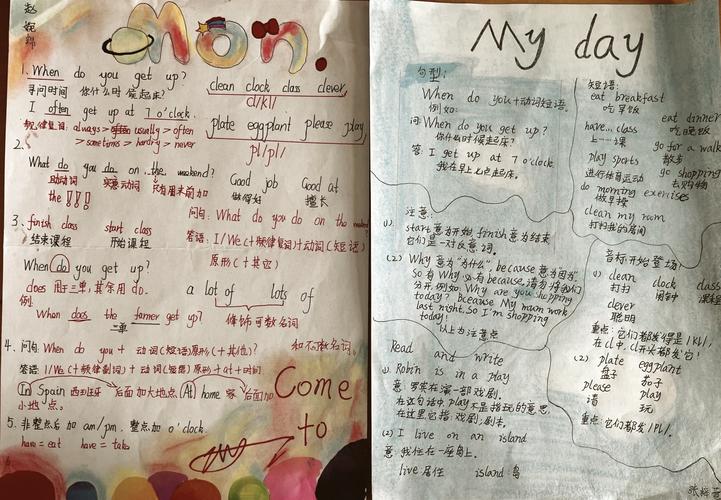 赵
Mon.
1. When do you get up?
寻问时间 你什么时候起床?
I often get up at 7 o'clock.
always > usually > often
> sometimes > hardly > never
clean clock class clever
cl/kl/
plate eggplant please play
pl/pl/
2.
What do you do on the weekend?
助动词 实意动词 只有周末前加
the!!!
Good job Good at
做得好 擅长
问句: What do you do on the
答语: I/We (+频律副词)+动词(短语)
原形(+其它)
3. finish class start class
结束课程 开始课程
When do you get up?
does 用于三单,其余用do.
例.
When does the farmer get up?
三单
a lot of lots of
修饰可数名词
和不可数名词.
4. 问句: When do you + 动词(短语)原形(+其他)?
答语: I/We(+频律副词)+动词(短语)原形+at+时间.
In Spain 西班牙 后面加大地点. At home 家 后面加
小地点.
5. 非整点后加 am/pm. 整点加 o'clock.
have=eat have=take
Come
to
My day
句型:
When do you+动词短语.
例如:
问: When do you get up?
你什么时候起床?
答: I get up at 7 o'clock
我在早上七点起床.
短语:
eat breakfast
吃早饭
eat dinner
吃晚饭
have... class
上一课
go for a walk
散步
play sports
进行体育运动
go shopping
去购物
do morning exercises
做早操
clean my room
打扫我的房间
注意:
(1). start 意为开始, finish 意为结束
它们是一对反意词.
(2) Why 意为“为什么”, because 意为因为
So 有 Why 必有 because, 请勿将他们
分开. 例如 Why are you shopping
today? Because My mum work
last night. So I'm shopping
today!
以上为注意点
音标开始登场!
(1) clean clock class
打扫 闹钟 课程
clever
聪明
重点: 它们都发得是/kl/,
在cl中, cl开头都发它!
(2) plate eggplant
盘子 茄子
please play
请 玩
重点: 它们都发/pl/.
Read and write
(1) Robin is in a play
意: 罗宾在演一部戏剧.
在这句话中, play 不是指玩的意思,
在这里它指: 戏剧, 剧本.
(2) I live on an island
意: 我住在一座岛上.
live 居住 island 岛
张